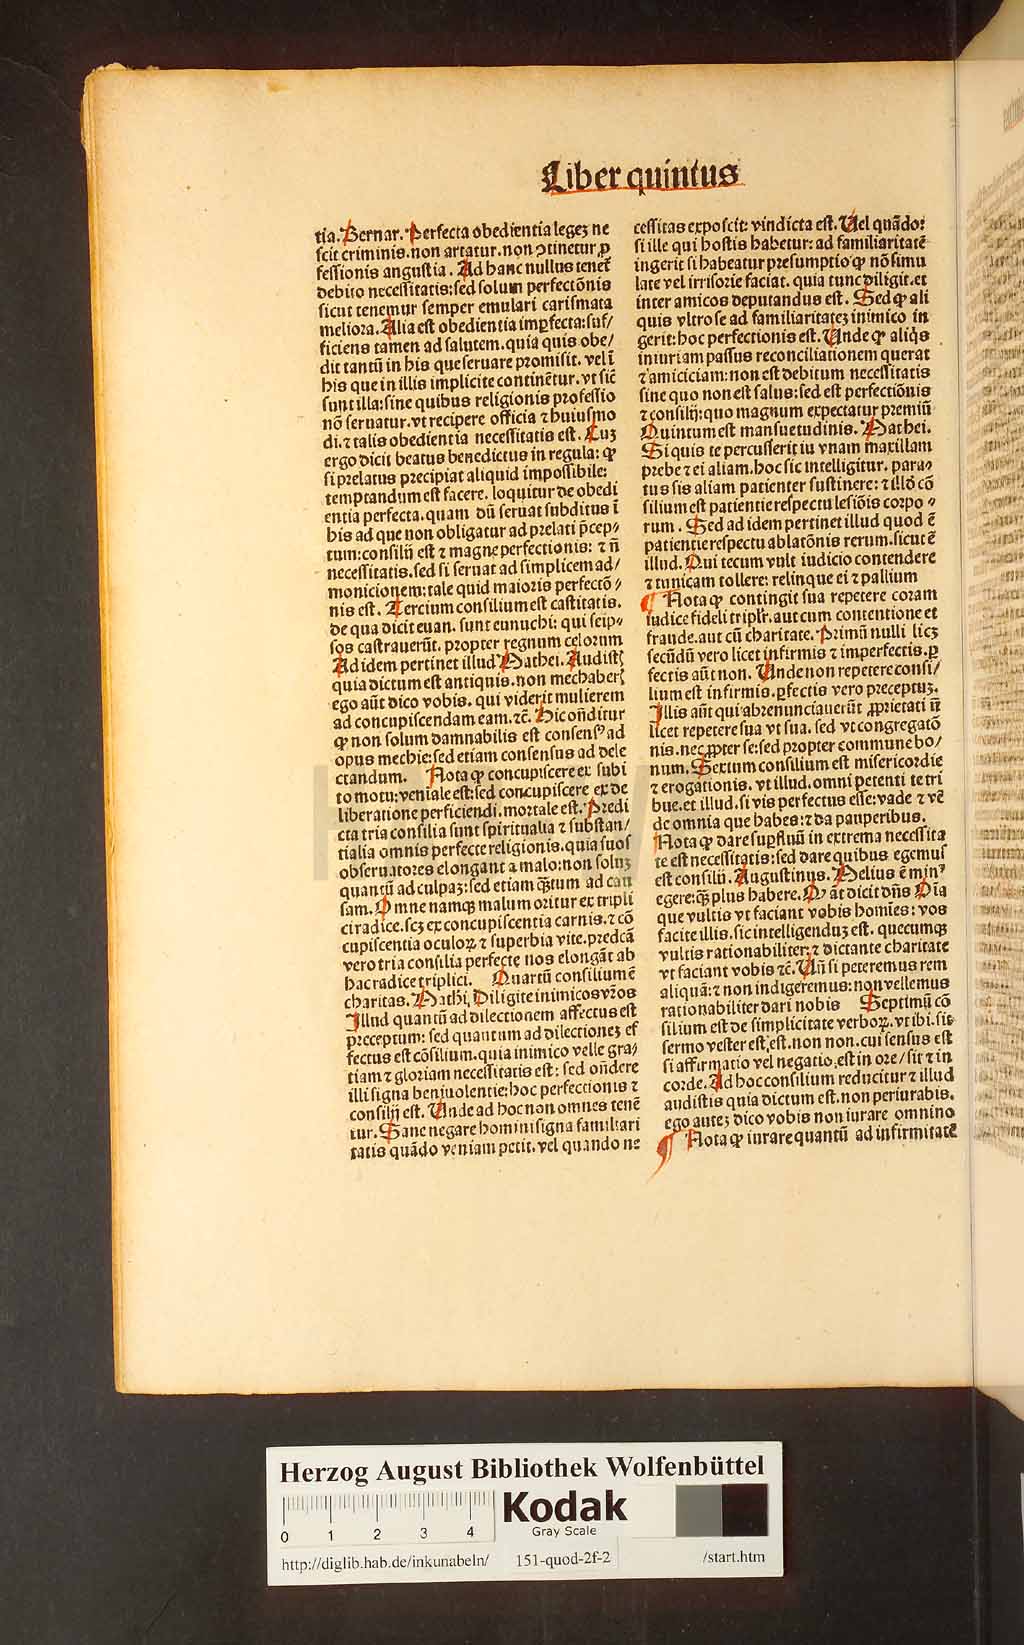 Liber quintus
tia. Bernar. Perfecta obedientia legeꝫ ne
scit criminis. non artatur. non ꝯtinetur ꝓ
fessionis angustia. Ad hanc nullus tenet᷑
debito necessitatis: sed solum perfectōnis
sicut tenemur semper emulari carismata
meliora. Alia est obedientia imꝑfecta: suf/
ficiens tamen ad salutem. quia quis obe/
dit tantū in his que seruare promisit. vel ī
his que in illis implicite continētur. vt sic̄
sunt illa: sine quibus religionis professio
nō seruatur. vt recipere officia ⁊ huiusmo
di. ⁊ talis obedientia necessitatis est. Cuꝫ
ergo dicit beatus benedictus in regula: ꝙ
si prelatus precipiat aliquid impossibile:
temptandum est facere. loquitur de obedi
entia perfecta. quam dū seruat subditus ī
his ad que non obligatur ad prelati p̄cep/
tum: consilij est ⁊ magne perfectionis: ⁊ n̄
necessitatis. sed si seruat ad simplicem ad/
monicionem: tale quid maioris perfectō/
nis est. Tercium consilium est castitatis.
de qua dicit euan. sunt eunuchi: qui seip/
sos castrauerūt. propter regnum celorum
Ad idem pertinet illud Mathei. Audistꝭ
quia dictum est antiquis. non mechaberꝭ
ego aūt dico vobis. qui viderit mulierem
ad concupiscendam eam. ⁊c̄. Hic on̄ditur
ꝙ non solum damnabilis est consensꝰ ad
opus mechie: sed etiam consensus ad dele
ctandum. Nota ꝙ concupiscere ex subi
to motu: veniale est: sed concupiscere ex de
liberatione perficiendi. mortale est. Predi
cta tria consilia sunt spiritualia ⁊ substan/
tialia omnis perfecte religionis. quia suos
obseruatores elongant a malo: non soluꝫ
quantū ad culpaꝫ: sed etiam qȝtum ad cau
sam. Omne namqꝫ malum oritur ex tripli
ci radice. scꝫ ex concupiscentia carnis. ⁊ cō
cupiscentia oculoꝝ ⁊ superbia vite. predcā
vero tria consilia perfecte nos elongāt ab
hac radice triplici. Quartū consilium ē
charitas. Mathi. Diligite inimicos vr̄os
Illud quantū ad dilectionem affectus est
preceptum: sed quantum ad dilectioneꝫ ef
fectus est cōsilium. quia inimico velle gra/
tiam ⁊ gloriam necessitatis est: sed on̄dere
illi signa beniuolentie: hoc perfectionis ⁊
consilij est. Unde ad hoc non omnes tenē
tur. Sane negare homini signa familiari
tatis quādo veniam petit. vel quando ne
cessitas exposcit: vindicta est. Uel quādo:
si ille qui hostis habetur: ad familiaritatē
ingerit si habeatur presumptio ꝙ nō simu
late vel irrisorie faciat. quia tunc diligit. et
inter amicos deputandus est. Sed ꝙ ali
quis vltro se ad familiaritateꝫ inimico in
gerit: hoc perfectionis est. Unde ꝙ aliqͥs
iniuriam passus reconciliationem querat
⁊ amiciciam: non est debitum necessitatis
sine quo non est salus: sed est perfectiōnis
⁊ consilij: quo magnum expectatur premiū
Quintum est mansuetudinis. Mathei.
Si quis te percusserit iu vnam maxillam
prebe ⁊ ei aliam. hoc sic intelligitur. para/
tus sis aliam patienter sustinere: ⁊ illđ cō
silium est patientie respectu lesiōis corpo/
rum. Sed ad idem pertinet illud quod ē
patientie respectu ablatōnis rerum. sicut ē
illud. Qui tecum vult iudicio contendere
⁊ tunicam tollere: relinque ei ⁊ pallium
¶ Nota ꝙ contingit sua repetere coram
iudice fideli triplr̄. aut cum contentione et
fraude. aut cū charitate. Primū nulli licꝫ
secūdū vero licet infirmis ⁊ imperfectis. ꝑ
fectis aūt non. Unde non repetere consi/
lium est infirmis. ꝑfectis vero preceptuꝫ.
Illis aūt qui abrenunciauerūt ꝓprietati n̄
licet repetere sua vt sua. sed vt congregatō
nis. nec ꝓpter se: sed propter commune bo/
num. Sextum consilium est misericordie
⁊ erogationis. vt illud. omni petenti te tri
bue. et illud. si vis perfectus esse: vade ⁊ vē
de omnia que habes: ⁊ da pauperibus.
Nota ꝙ dare suꝑfluū in extrema necessita
te est necessitatis: sed dare quibus egemus
est consilii. Augustinus. Melius ē minꝰ
egere: qȝ plus habere. Qꝰ āt dicit dn̄s Oīa
que vultis vt faciant vobis homīes: vos
facite illis. sic intelligenduꝫ est. quecumqꝫ
vultis rationabiliter: ⁊ dictante charitate
vt faciant vobis ⁊c̄. Un̄ si peteremus rem
aliquā: ⁊ non indigeremus: non vellemus
rationabiliter dari nobis Septimū cō
silium est de simplicitate verboꝝ. vt ibi. sit
sermo vester est, est. non non. cui sensus est
si affirmatio vel negatio. est in ore/ sit ⁊ in
corde. Ad hoc consilium reducitur ⁊ illud
audistis quia dictum est. non periurabis.
ego auteꝫ dico vobis non iurare omnino
¶ Nota ꝙ iurare quantū ad infirmitatē
Herzog August Bibliothek Wolfenbüttel
Kodak
Gray Scale
0 1 2 3 4
http://diglib.hab.de/inkunabeln/ 151-quod-2f-2 /start.htm